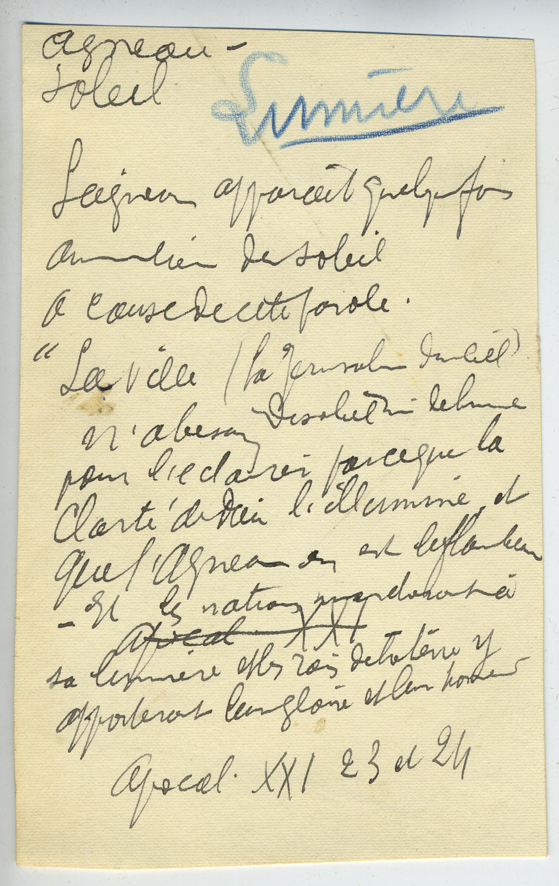 Agneau -
Soleil
Lumière
L'agneau apparait quelquefois
au milieu du soleil
a cause de cette parole.
"La Ville (la Jérusalem du ciel)
n'a besoin de soleil ni de lune
pour l'éclairer parce que la
Clarté de Dieu l'illumine, et
que l'Agneau en est le flambeau
- Et les nations marcheront à
Apocal XXI
sa lumière et les rois de la terre y
apporteront leur gloire et leur honneur
Apocal. XXI 23 et 24